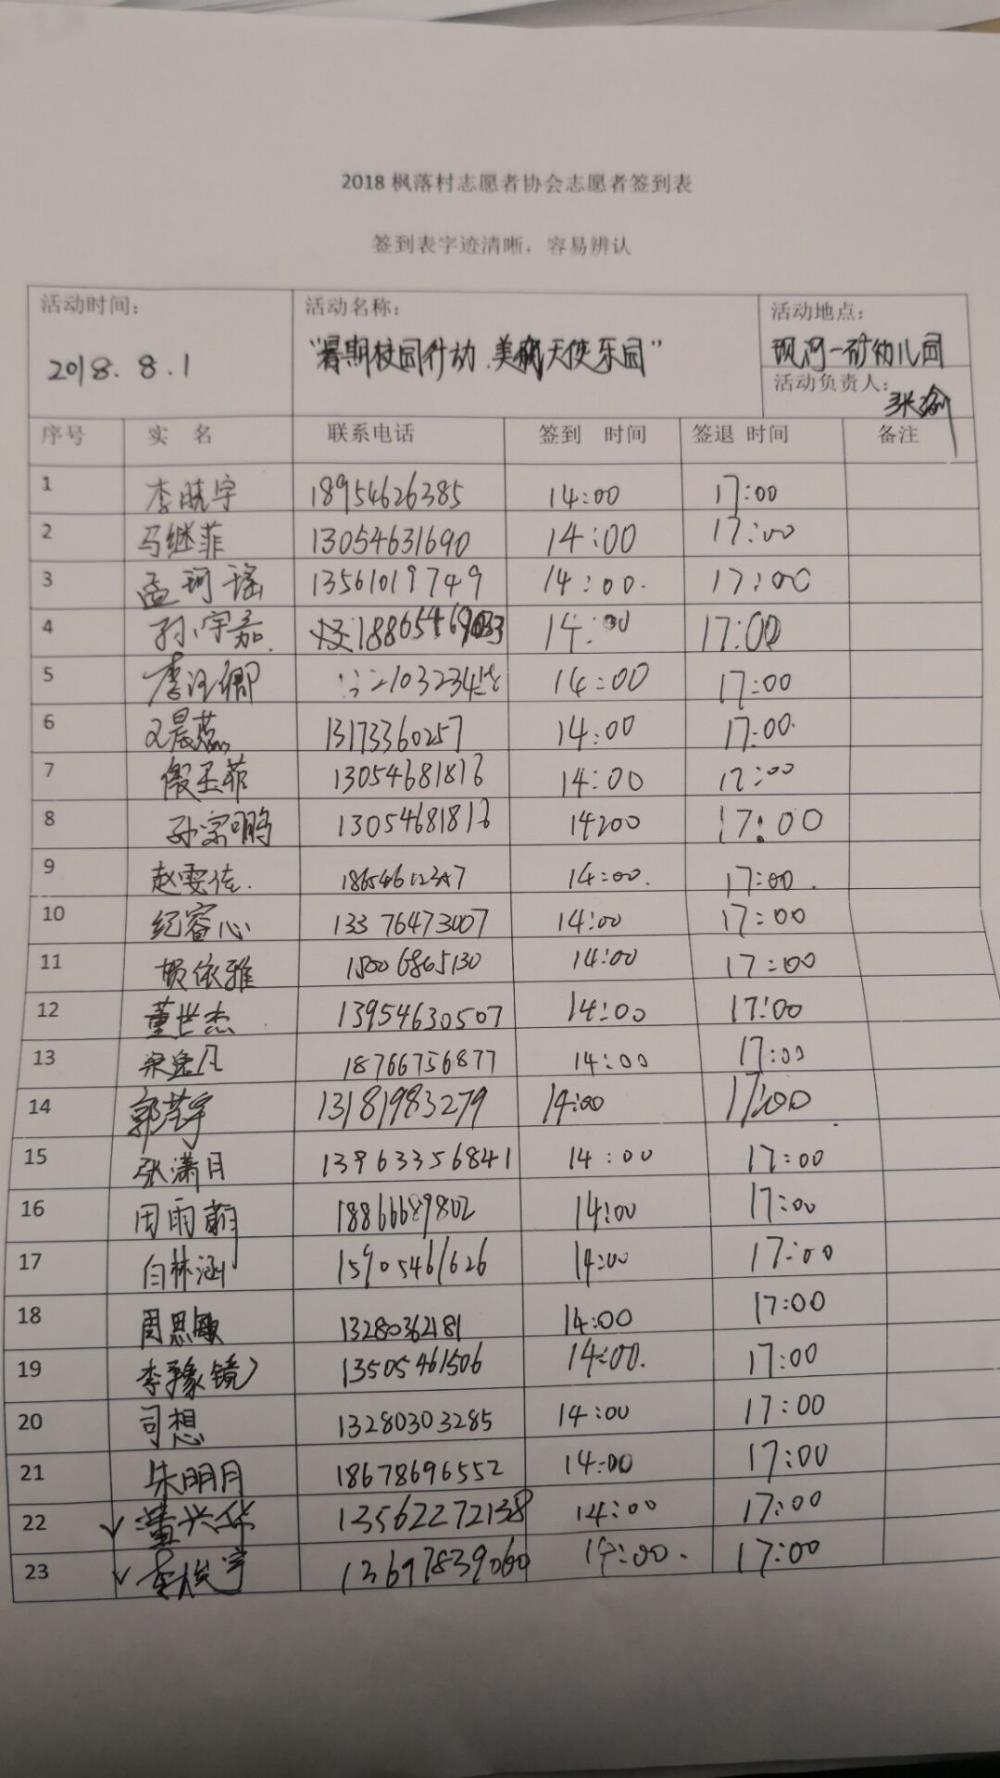 2018 枫落村志愿者协会志愿者签到表
签到表字迹清晰，容易辨认
活动时间： 活动名称： 活动地点：
2018.8.1 "暑期校园行动.美 天使乐园" 现河一矿幼儿园
活动负责人：张
序号 实 名 联系电话 签到 时间 签退 时间 备注
1 李晓宇 18954626385 14:00 17:00
2 马继菲 13054631690 14:00 17:00
3 孟珂瑶 13561019749 14:00. 17:00
4 孙宇嘉. 14:00 17:00
5 李 卿 14:00 17:00
6 晨蕊 13173360257 14:00 17:00.
7 菲 13054681816 14:00 17:00
8 孙宗鹏 13054681816 14:00 17:00
9 赵雯佐. 14:00. 17:00.
10 纪睿心 133 76473007 14:00 17:00
11 依雅 15006865130 14:00 17:00
12 董世杰 13954630507 14:00 17:00
13 梁逸凡 18766756877 14:00 17:00
14 郭芸宇 13181983279 14:00 17:00
15 张潇月 13963356841 14:00 17:00
16 周雨萌 18866689802 14:00 17:00
17 白林涵 15905461626 14:00 17:00
18 周思敏 13280362181 14:00 17:00
19 李豫镜 13505461506 14:00. 17:00
20 司想 13280303285 14:00 17:00
21 朱明月 18678696552 14:00 17:00
22 董兴华 13562272138 14:00 17:00
23 宇 13697839060 14:00. 17:00